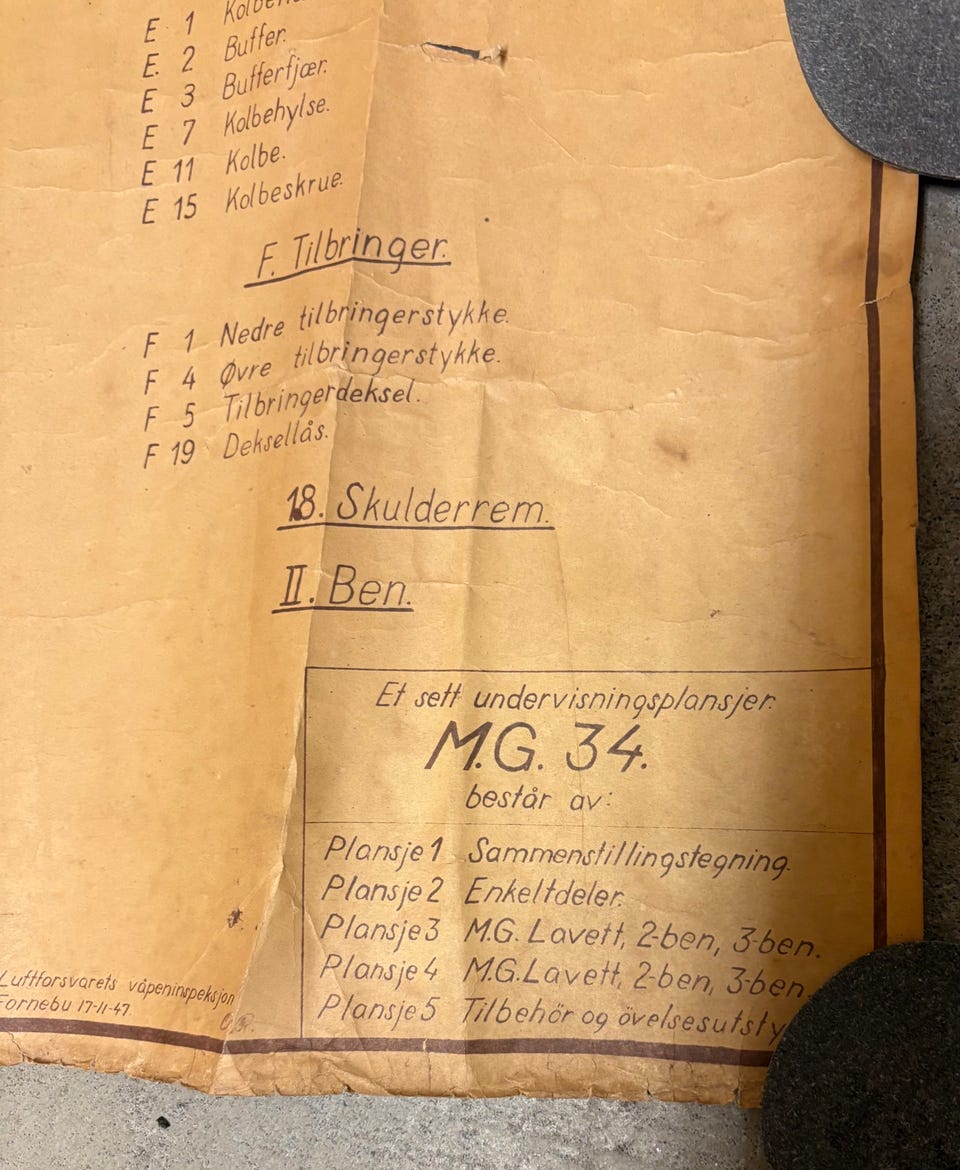 E 1
E. 2 Buffer.
E 3 Bufferfjær.
E 7 Kolbehylse.
E 11 Kolbe.
E 15 Kolbeskrue.
F. Tilbringer.
F 1 Nedre tilbringerstykke.
F 4 Øvre tilbringerstykke.
F 5 Tilbringerdeksel.
F 19 Deksellås.
18. Skulderrem.
II. Ben.
Et sett undervisningsplansjer
M.G. 34.
består av:
Plansje 1 Sammenstillingstegning.
Plansje 2 Enkeltdeler.
Plansje 3 M.G. Lavett, 2-ben, 3-ben.
Plansje 4 M.G. Lavett, 2-ben, 3-ben.
Plansje 5 Tilbehör og övelsesutsty
Luftforsvarets våpeninspeksjon
Fornebu 17-11-47.